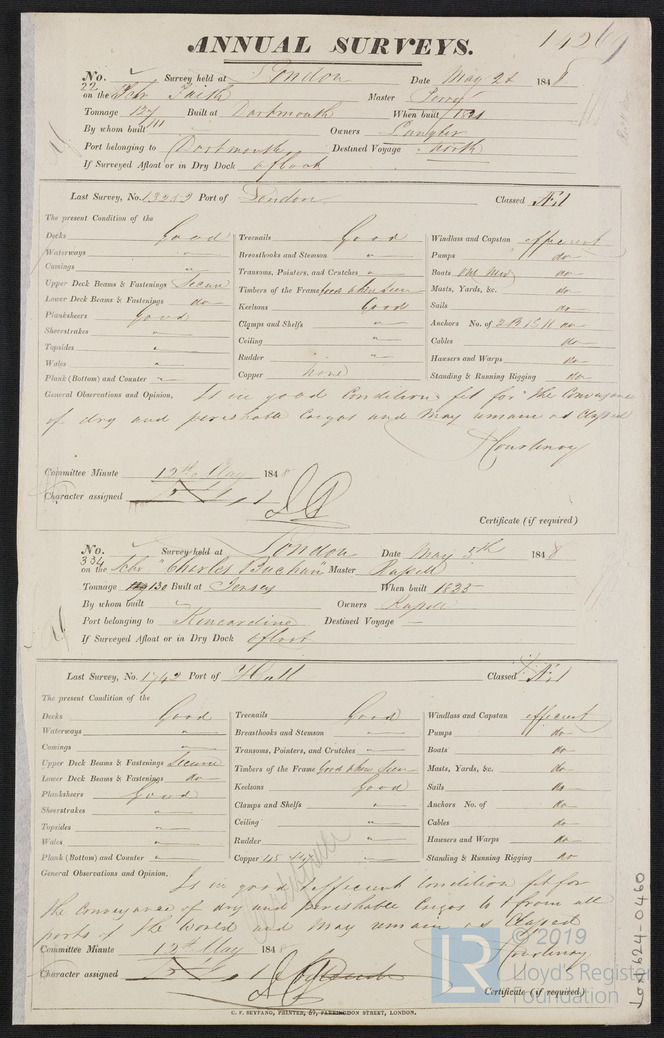 ANNUAL SURVEYS.
No. Survey held at London Date May 2d 1848
22 on the Schr Faith Master Perry
Tonnage 127 Built at Dartmouth When built 1821
By whom built Owners
Port belonging to Dartmouth Destined Voyage North
If Surveyed Afloat or in Dry Dock afloat
Last Survey, No. 13253 Port of London Classed Æ1
The present Condition of the
Decks Good Treenails Good Windlass and Capstan efficient
Waterways " Breasthooks and Stemson " Pumps do
Comings " Transoms, Pointers, and Crutches " Boats One New do
Upper Deck Beams & Fastenings Secure Timbers of the Frame good when seen Masts, Yards, &c. do
Lower Deck Beams & Fastenings do Keelsons Good Sails do
Planksheers good Clamps and Shelfs " Anchors No. of 2 B 1 S 1 K do
Sheerstrakes " Ceiling " Cables do
Topsides " Rudder " Hawsers and Warps do
Wales " Copper none Standing & Running Rigging do
Plank (Bottom) and Counter "
General Observations and Opinion, Is in good Condition fit for the Conveyance
of dry and perishable Cargos and may remain as Classed
J Courtenay
Committee Minute 12th May 1848
Character assigned
Certificate (if required)
No. Survey held at London Date May 5th 1848
334 on the Schr "Charles Buchan" Master
Tonnage 130 Built at Jersey When built 1835
By whom built Owners
Port belonging to Kincardine Destined Voyage —
If Surveyed Afloat or in Dry Dock afloat
Last Survey, No. 1742 Port of Hull Classed Æ1
The present Condition of the
Decks Good Treenails Good Windlass and Capstan efficient
Waterways " Breasthooks and Stemson " Pumps do
Comings " Transoms, Pointers, and Crutches " Boats do
Upper Deck Beams & Fastenings Secure Timbers of the Frame good when seen Masts, Yards, &c. do
Lower Deck Beams & Fastenings do Keelsons Good Sails do
Planksheers Good Clamps and Shelfs " Anchors No. of do
Sheerstrakes " Ceiling " Cables do
Topsides " Rudder " Hawsers and Warps do
Wales " Copper Standing & Running Rigging do
Plank (Bottom) and Counter "
General Observations and Opinion, Is in good & efficient Condition fit for
the Conveyance of dry and perishable Cargos to & from all
ports of the World and may remain as Classed
J Courtenay
Committee Minute 12th May 1848
Character assigned
Certificate (if required)
C. F. SEYFANG, PRINTER, 57, FARRINGDON STREET, LONDON.
LON 624-0460
LR © 2019
Lloyd's Register
Foundation